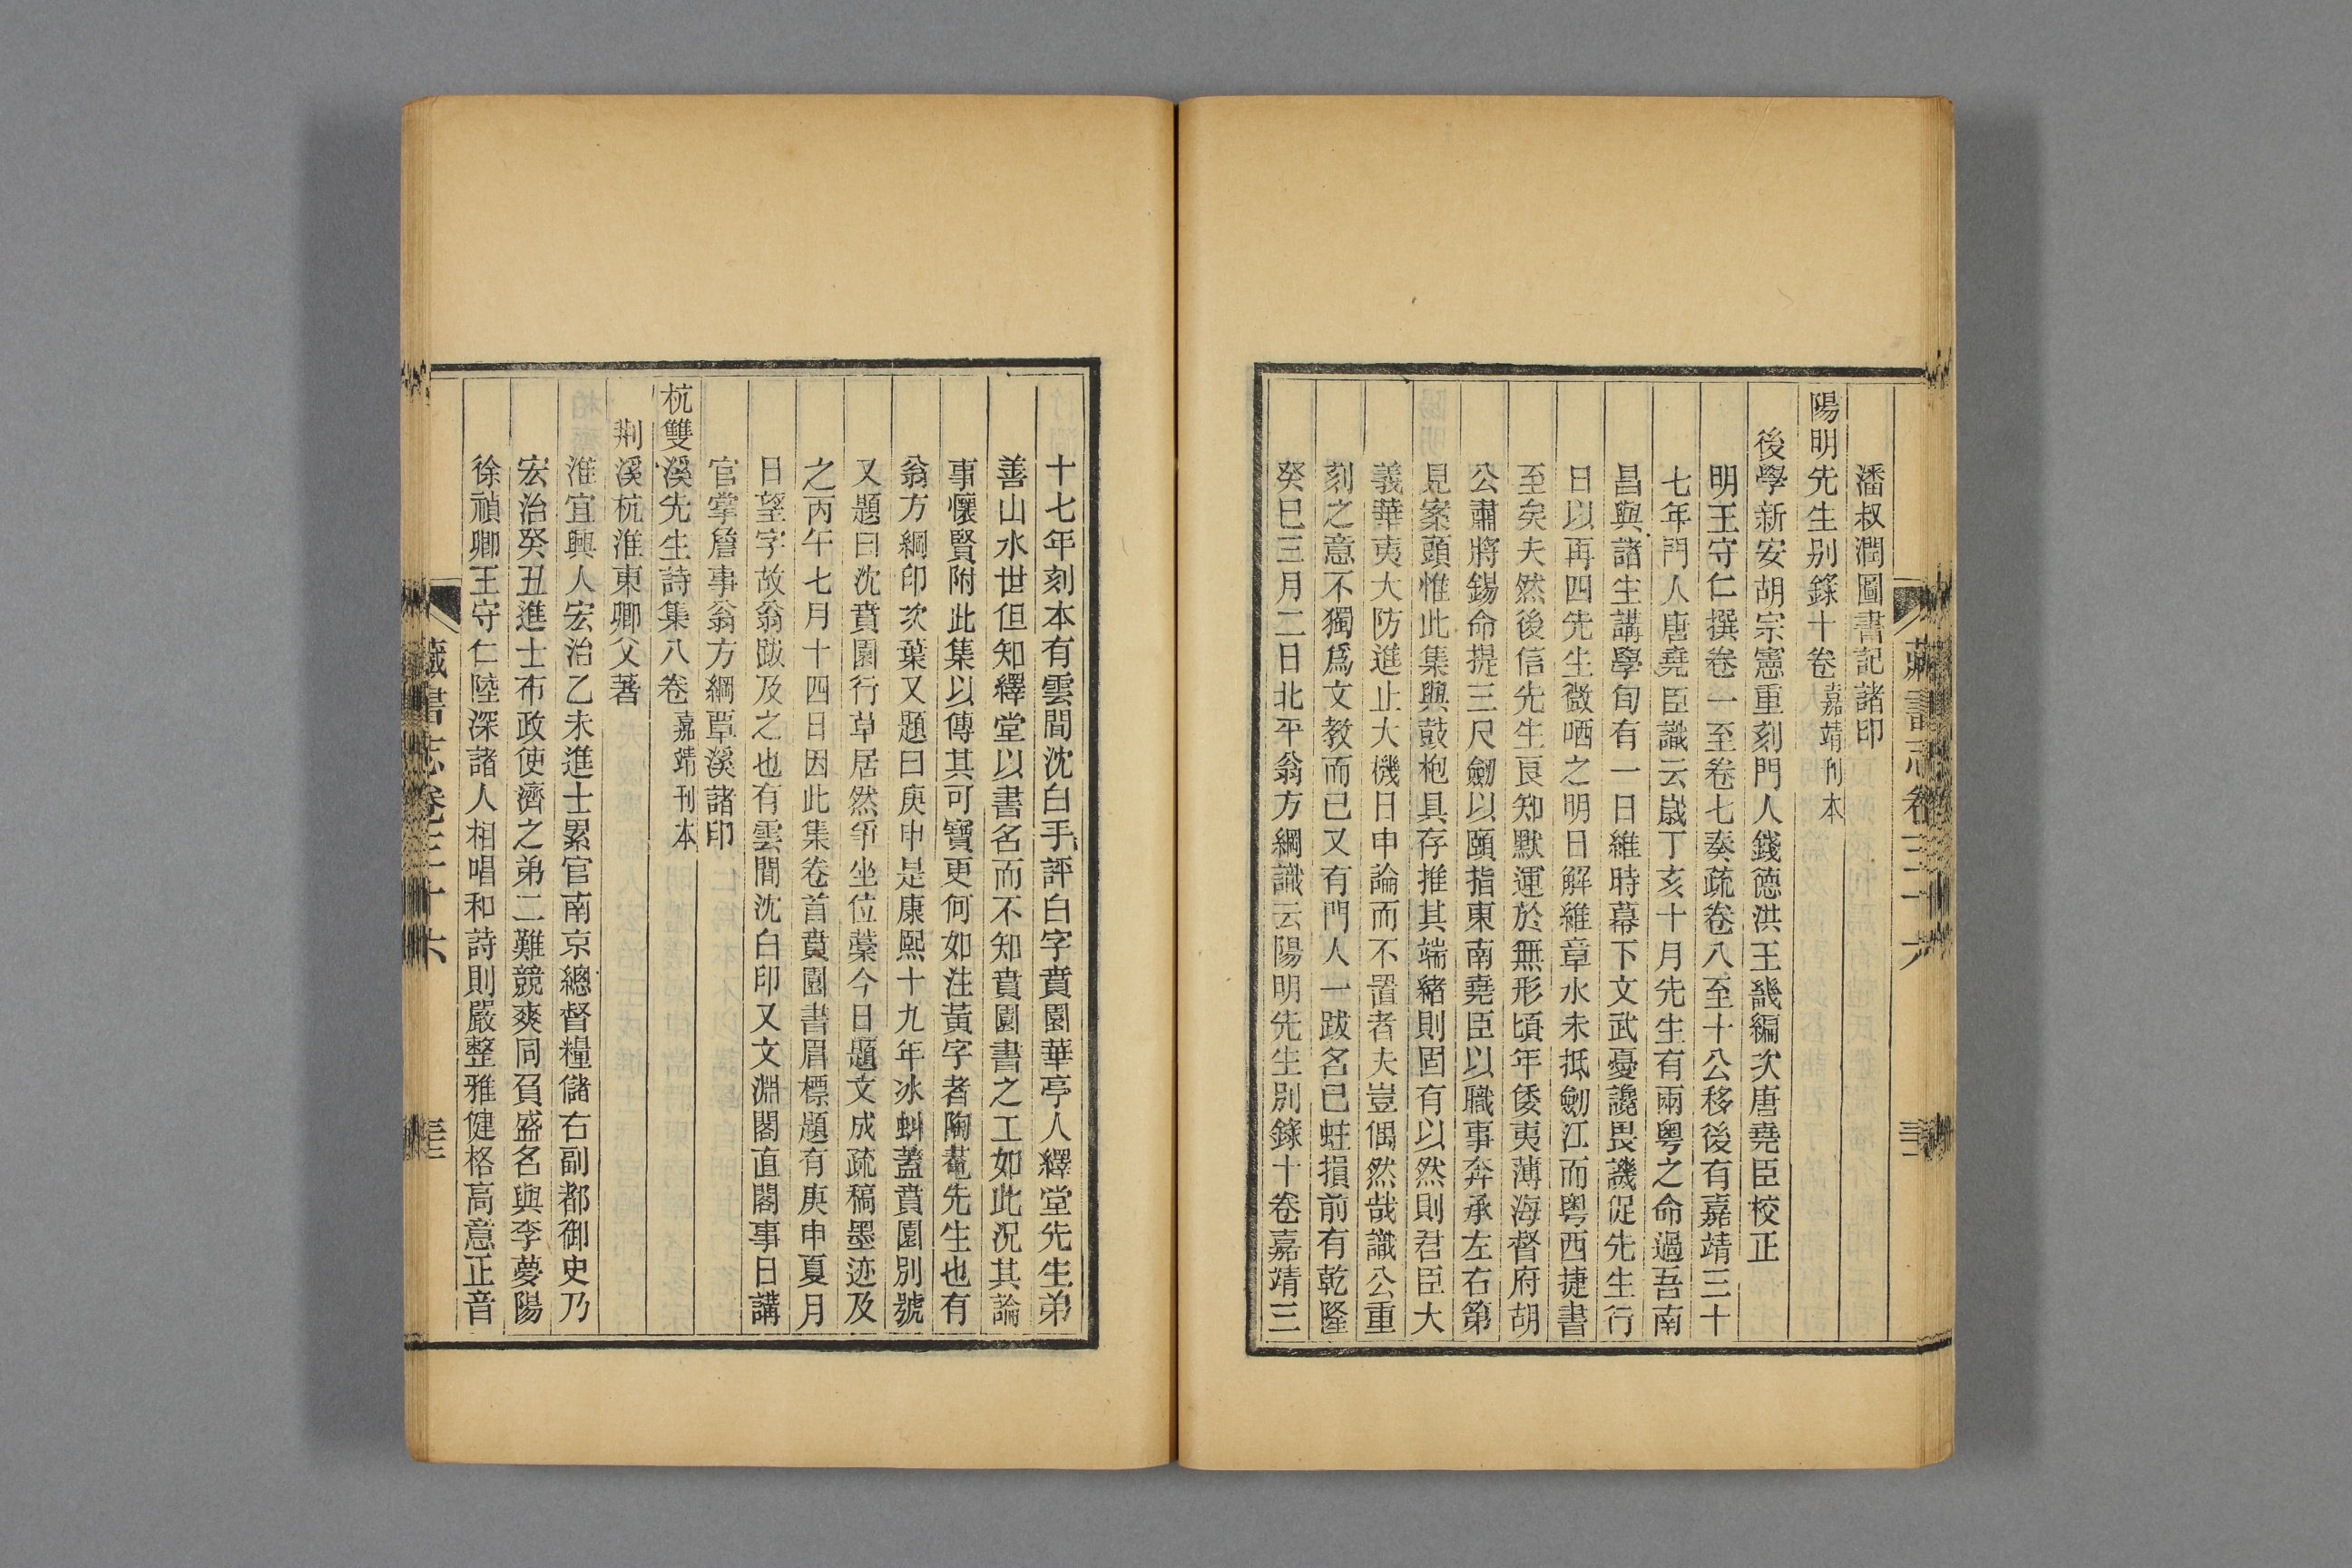 藏書志卷三十六
三十二
潘叔潤圖書記諸印
陽明先生別錄十卷嘉靖刊本
後學新安胡宗憲重刻門人錢德洪王畿編次唐堯臣校正
明王守仁撰卷一至卷七奏疏卷八至十公移後有嘉靖三十
七年門人唐堯臣識云嵗丁亥十月先生有兩粤之命過吾南
昌與諸生講學旬有一日維時幕下文武憂讒畏譏促先生行
日以再四先生微哂之明日解維章水未抵劒江而粤西捷書
至矣夫然後信先生良知默運於無形頃年倭夷薄海督府胡
公肅將錫命提三尺劒以頤指東南堯臣以職事奔承左右第
見案頭惟此集與鼓枹具存推其端緒則固有以然則君臣大
義華夷大防進止大機日申論而不置者夫豈偶然哉識公重
刻之意不獨爲文教而已又有門人一跋名已蛀損前有乾隆
癸巳三月二日北平翁方綱識云陽明先生別錄十卷嘉靖三
十七年刻本有雲間沈白手評白字賁園華亭人繹堂先生弟
善山水世但知繹堂以書名而不知賁園書之工如此况其論
事懷賢附此集以傳其可寶更何如注黃字者陶菴先生也有
翁方綱印次葉又題曰庚申是康熙十九年冰蚪蓋賁園別號
又題曰沈賁園行草居然爭坐位藁今日題文成疏稿墨迹及
之丙午七月十四日因此集卷首賁園書眉標題有庚申夏月
日望字故翁跋及之也有雲間沈白印又文淵閣直閣事日講
官掌詹事翁方綱覃溪諸印
杭雙溪先生詩集八卷嘉靖刊本
荆溪杭淮東卿父著
淮宜興人宏治乙未進士累官南京總督糧儲右副都御史乃
宏治癸丑進士布政使濟之弟二難競爽同負盛名與李夢陽
徐禎卿王守仁陸深諸人相唱和詩則嚴整雅健格高意正音
藏書志卷三十六
三十二